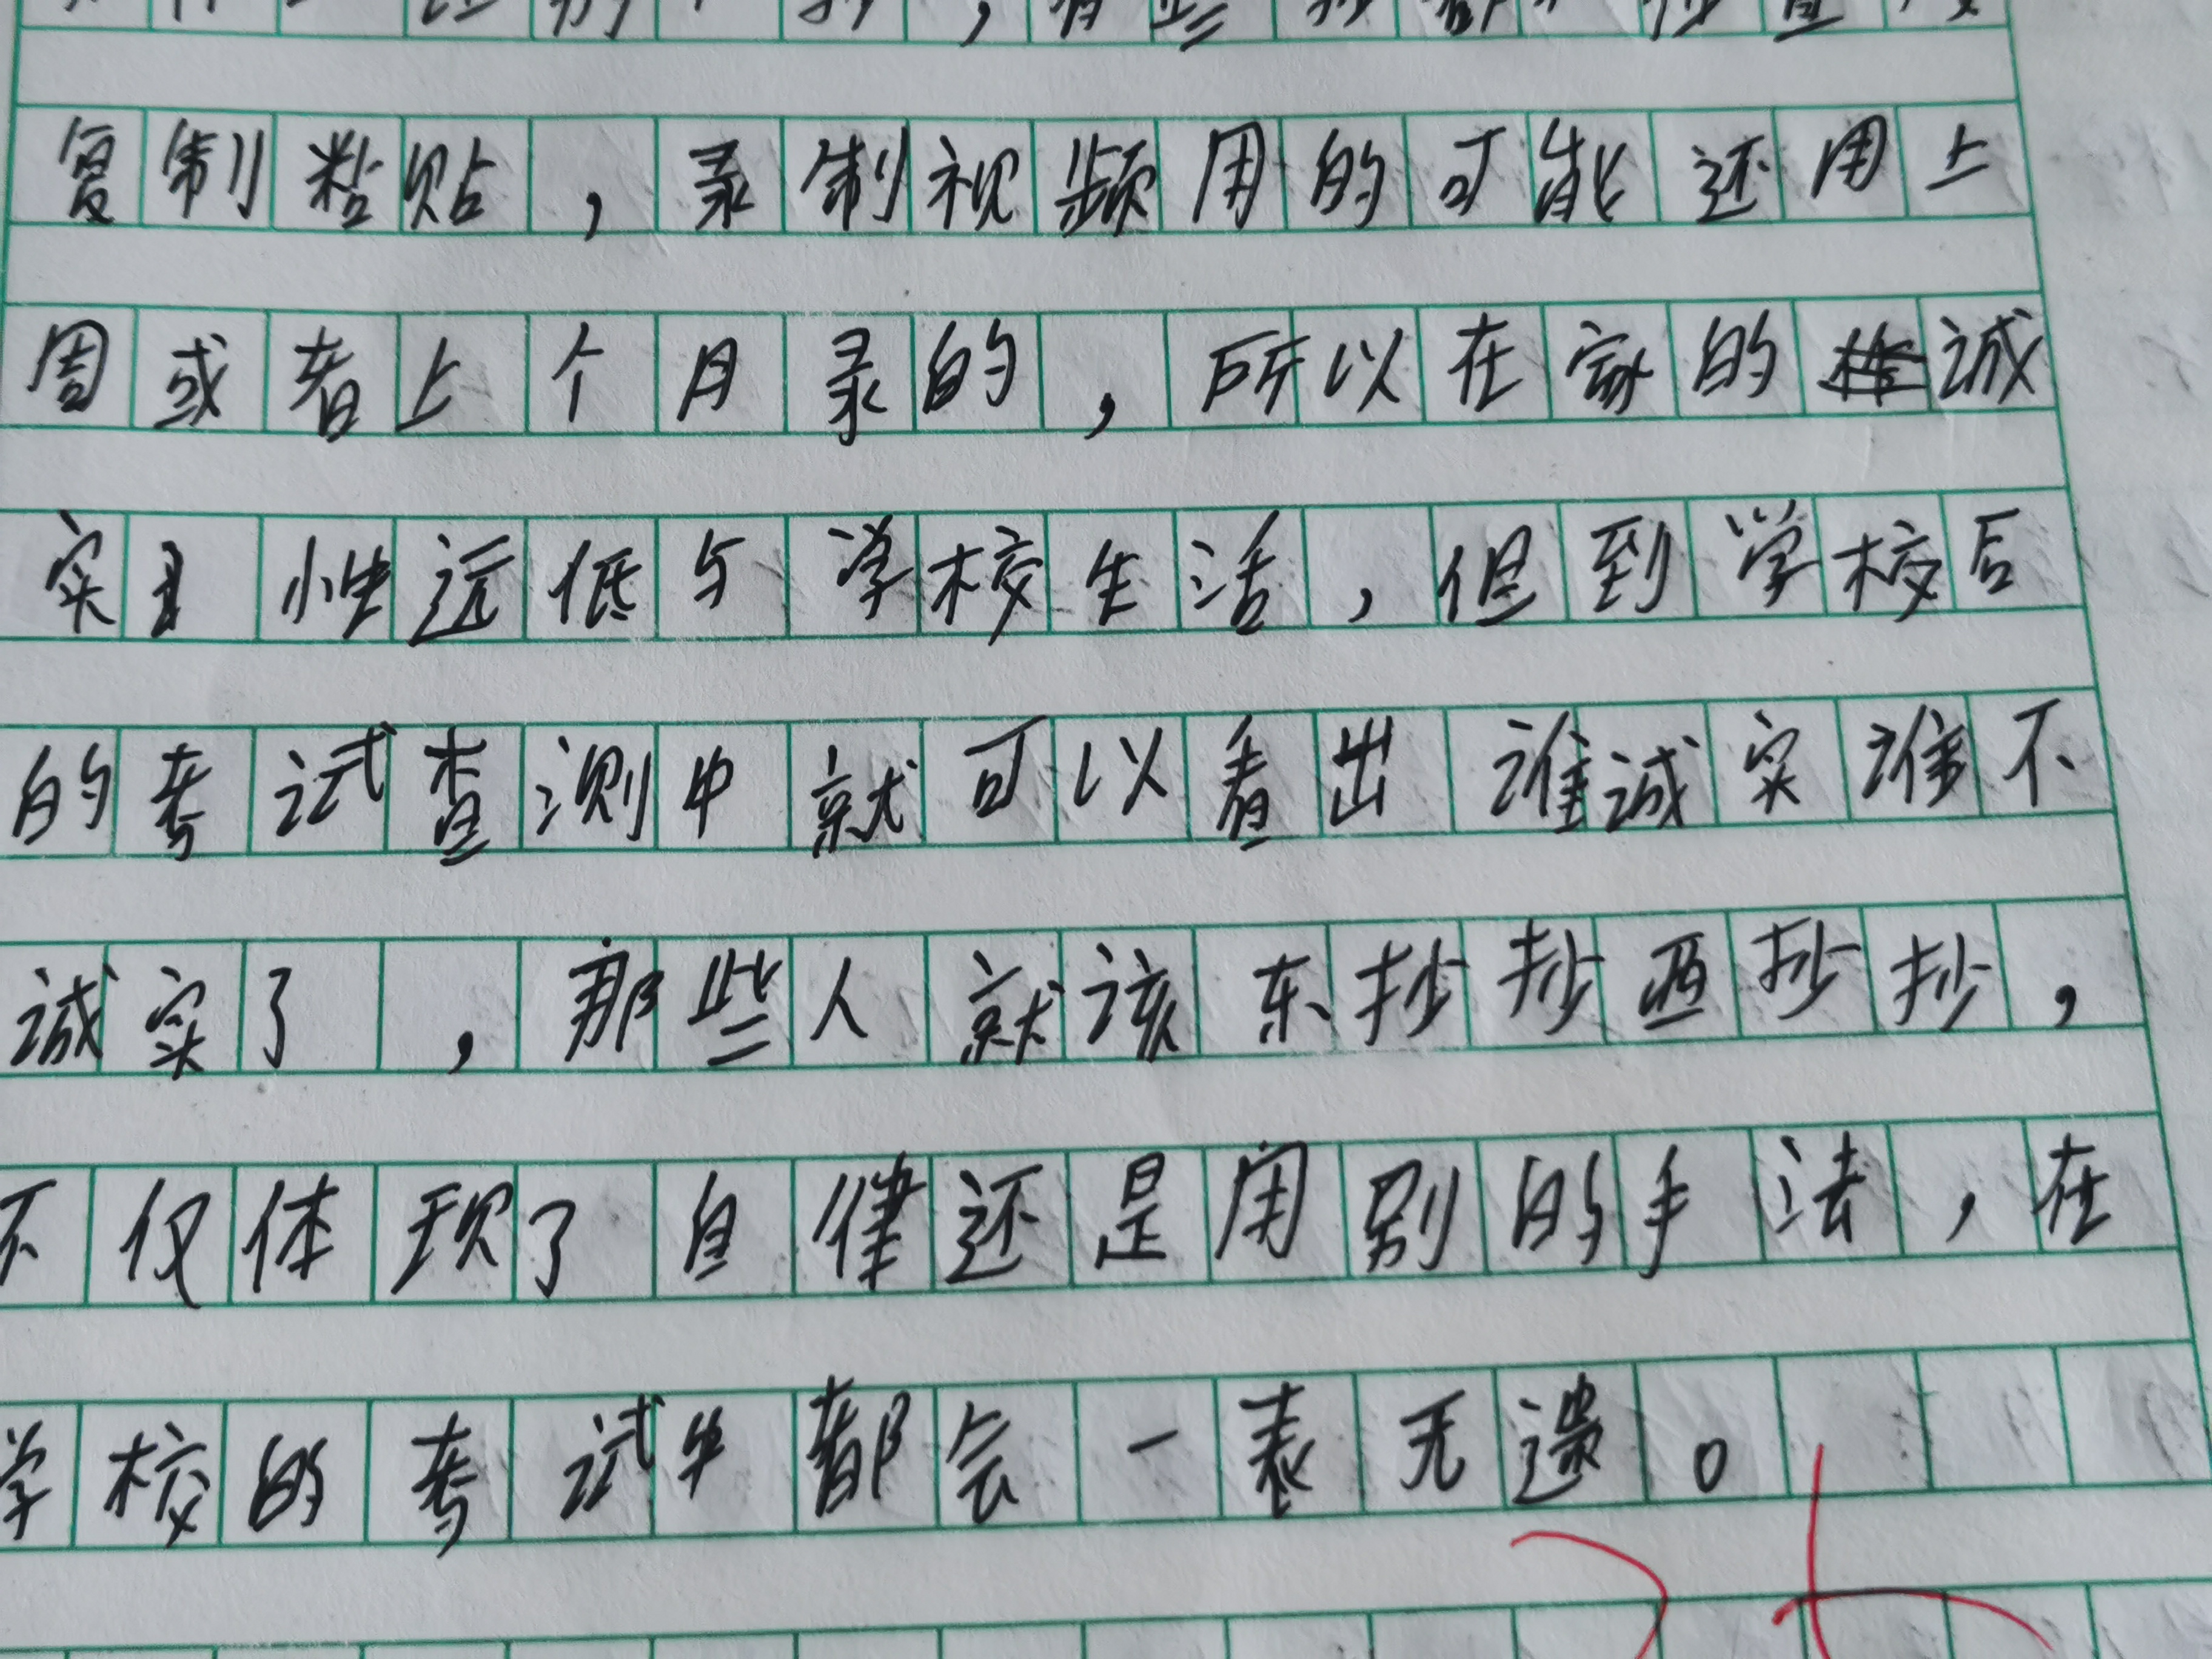 复制粘贴，录制视频用的可能还用上
周或者上个月录的，所以在家的诚
实性远低与学校生活，但到学校后
的考试查测中就可以看出谁诚实谁不
诚实了，那些人就该东抄抄西抄抄，
不仅体现了自律还是用别的手法，在
学校的考试中都会一表无遗。